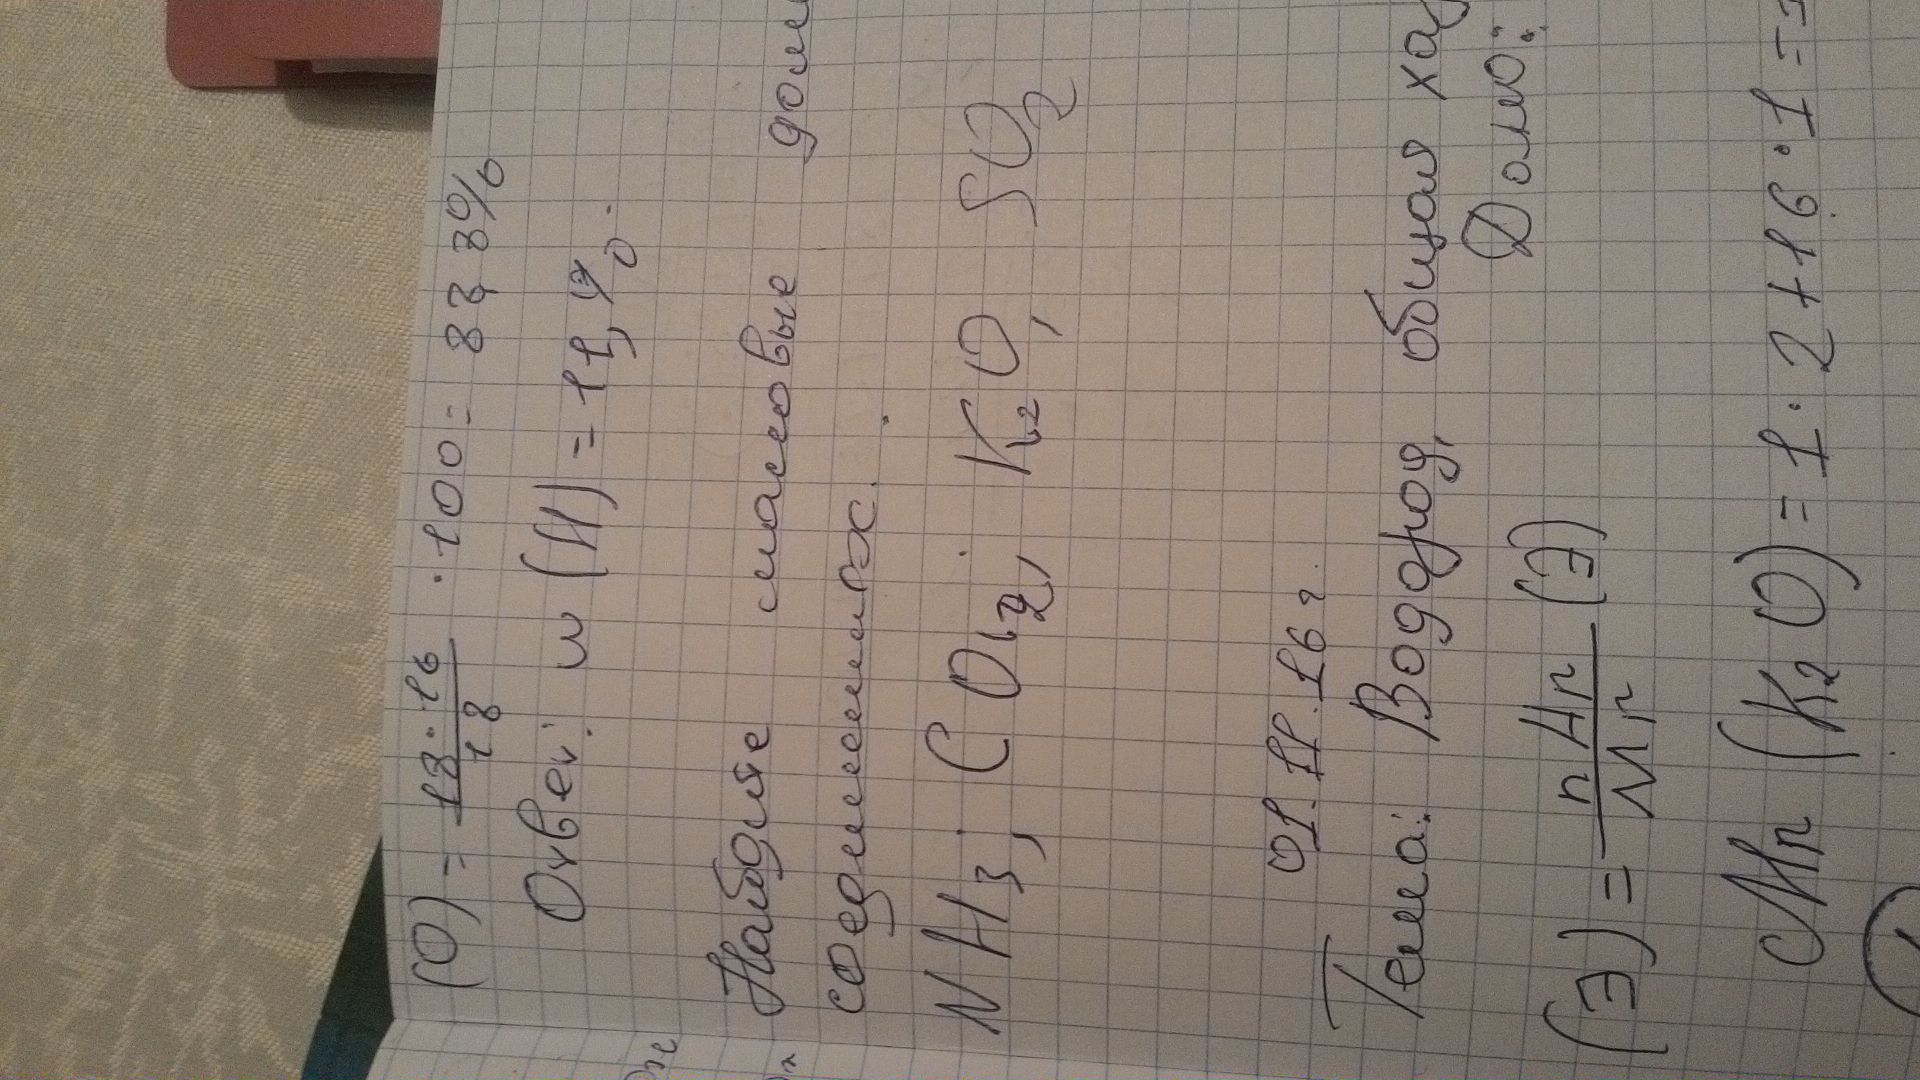 (O) = 18·16/18 · 100 = 88,8%
Ответ: w (H) = 11,%.
Найдите массовые
соединениях.
NH3; CO2, K2O, SO2
01.11.16г.
Тема: Водород, общая
Дано:
(Э) = nAr/Mr (Э)
Mr (K2O) = 1·2+16·1=